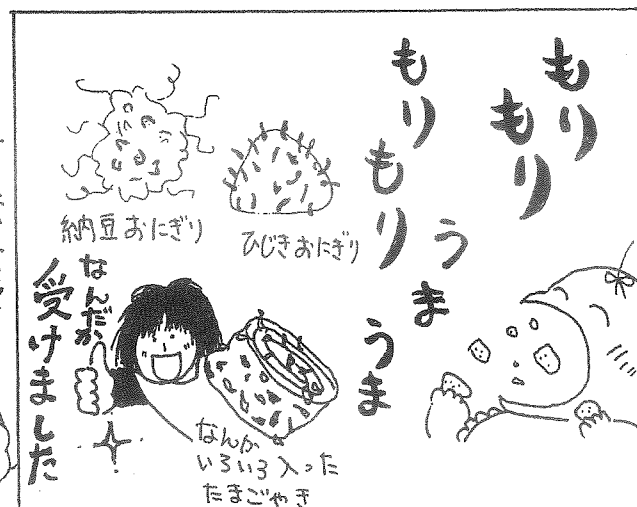 もりもり
もりもり
もりもり
うま
うま
納豆おにぎり
ひじきおにぎり
なんだか
受けました
なんか
いろいろ入った
たまごやき